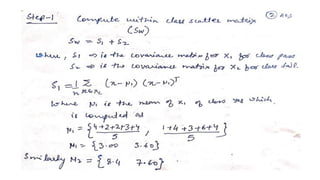 Step-1 Compute within class scatter matrix
(Sw)
Sw = S1 + S2
where, S1 => is the covariance matrix for X1 for class pass
S2 => is the covariance matrix for X2 for class fail.
S1 = 1/n Σ x∈x1 (x-μ1) (x-μ1)^T
where μ1 is the mean of x1 of class which
is computed as
μ1 = { 4+2+2+3+4 / 5 , 1+4+3+6+4 / 5 }
μ1 = { 3.00 3.60 }
Similarly μ2 = { 8.4 7.60 }